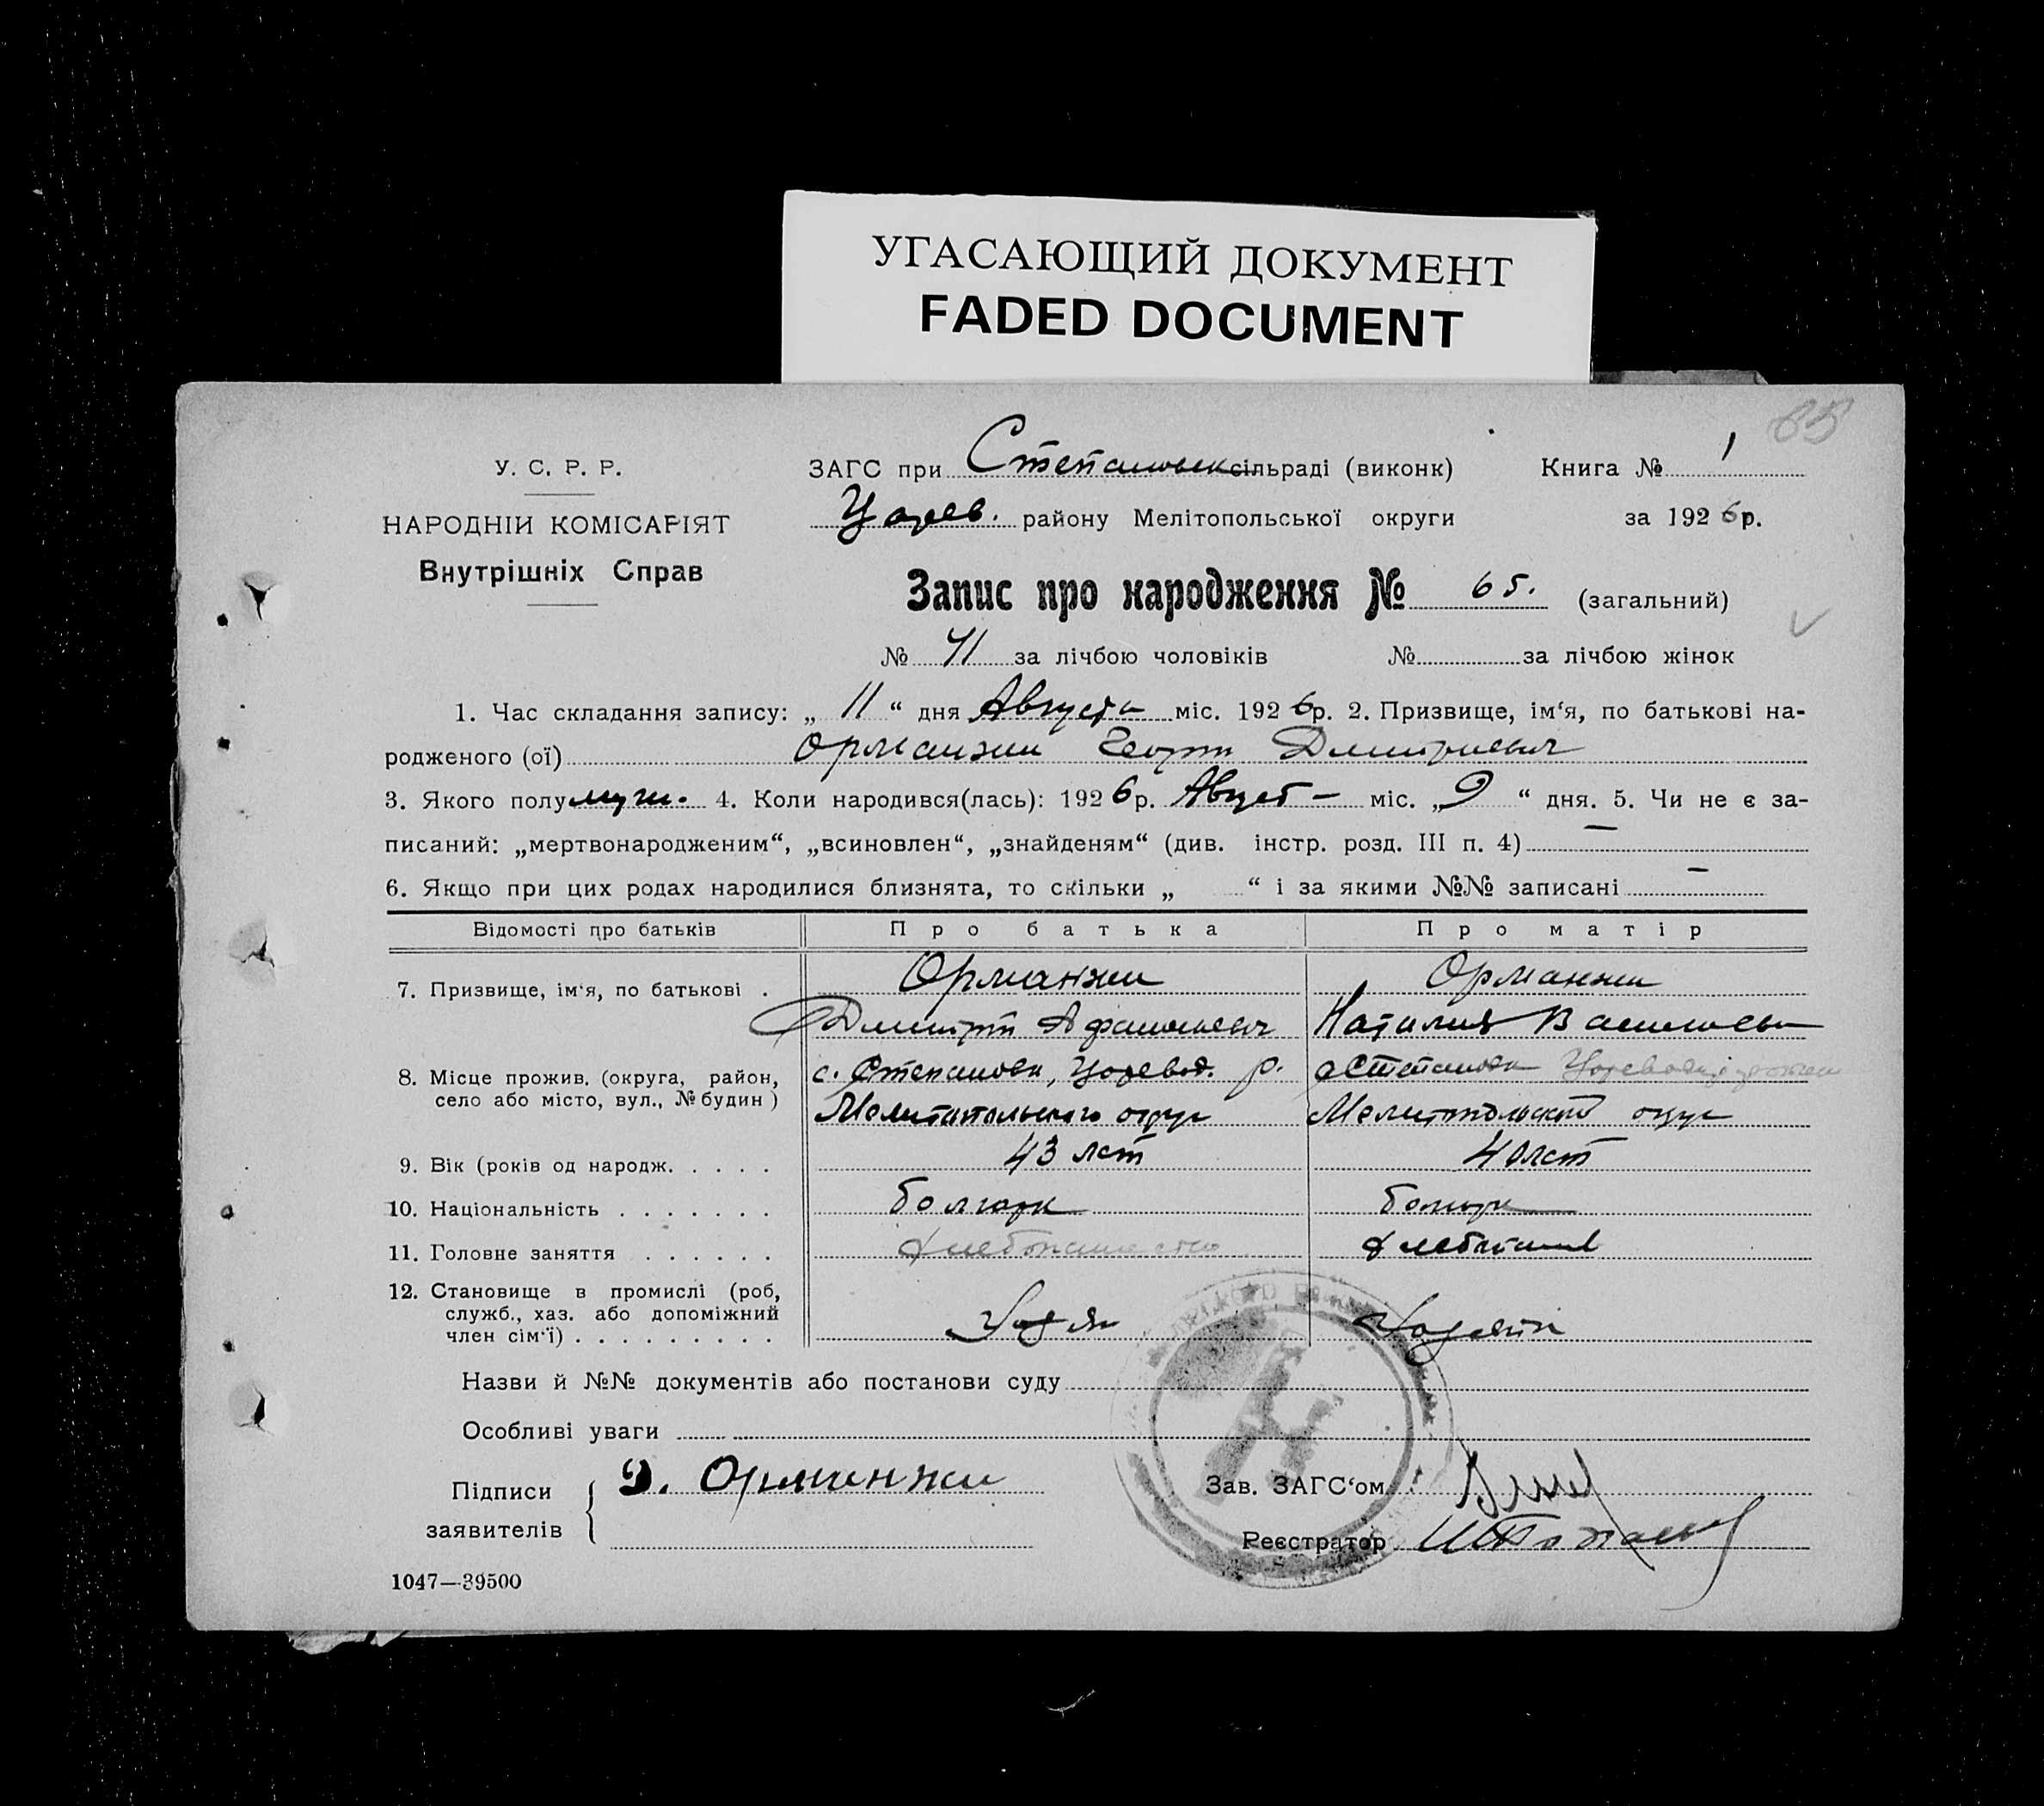 УГАСАЮЩИЙ ДОКУМЕНТ
FADED DOCUMENT
У. С. Р. Р.
НАРОДНІЙ КОМІСАРІЯТ
Внутрішніх Справ
ЗАГС при Степановск сільраді (виконк) Книга № 1
Царев. району Мелітопольської округи за 1926 р.
Запис про народження № 65. (загальний)
№ 41 за лічбою чоловіків № за лічбою жінок
1. Час складання запису: „ 11 “ дня Августа міс. 1926 р. 2. Призвище, ім‘я, по батькові на-
родженого (ої) Орманжи Георги Дмитриевич
3. Якого полу муж. 4. Коли народився(лась): 1926 р. Август – міс. „ 9 “ дня. 5. Чи не є за-
писаний: „мертвонародженим“, „всиновлен“, „знайденям“ (див. інстр. розд. III п. 4) —
6. Якщо при цих родах народилися близнята, то скільки „ “ і за якими №№ записані —
Відомості про батьків Про батька Про матір
7. Призвище, ім‘я, по батькові . Орманжи Орманжи
Дмитрий Афанасьевич Наталия Васильевн
8. Місце прожив. (округа, район, село або місто, вул., № будин) с. Степановка, Царевод. р. с Степановка
Мелитопольского округ Мелитопольский округ
9. Вік (років од народж. . . . . 43 лет 40 лет
10. Національність . . . . . . . болгарк болгарк
11. Головне заняття . . . . . . Хлебопашество Хлебопашес
12. Становище в промислі (роб,
служб., хаз. або допоміжний
член сім‘ї) . . . . . . . . .
Назви й №№ документів або постанови суду
Особливі уваги
Підписи заявителів Д. Орманжи
Зав. ЗАГС‘ом
Реєстратор
1047—39500